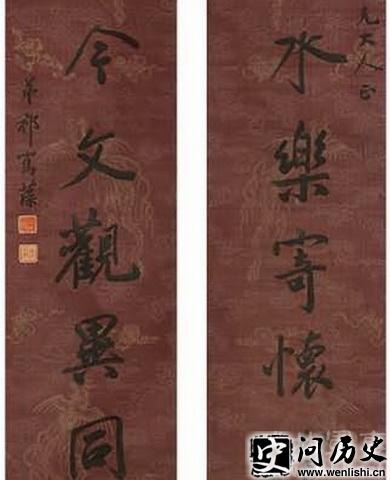 兄大人正
水樂寄懷
今文觀異同
弟祁寯藻
问历史
www.wenlishi.com